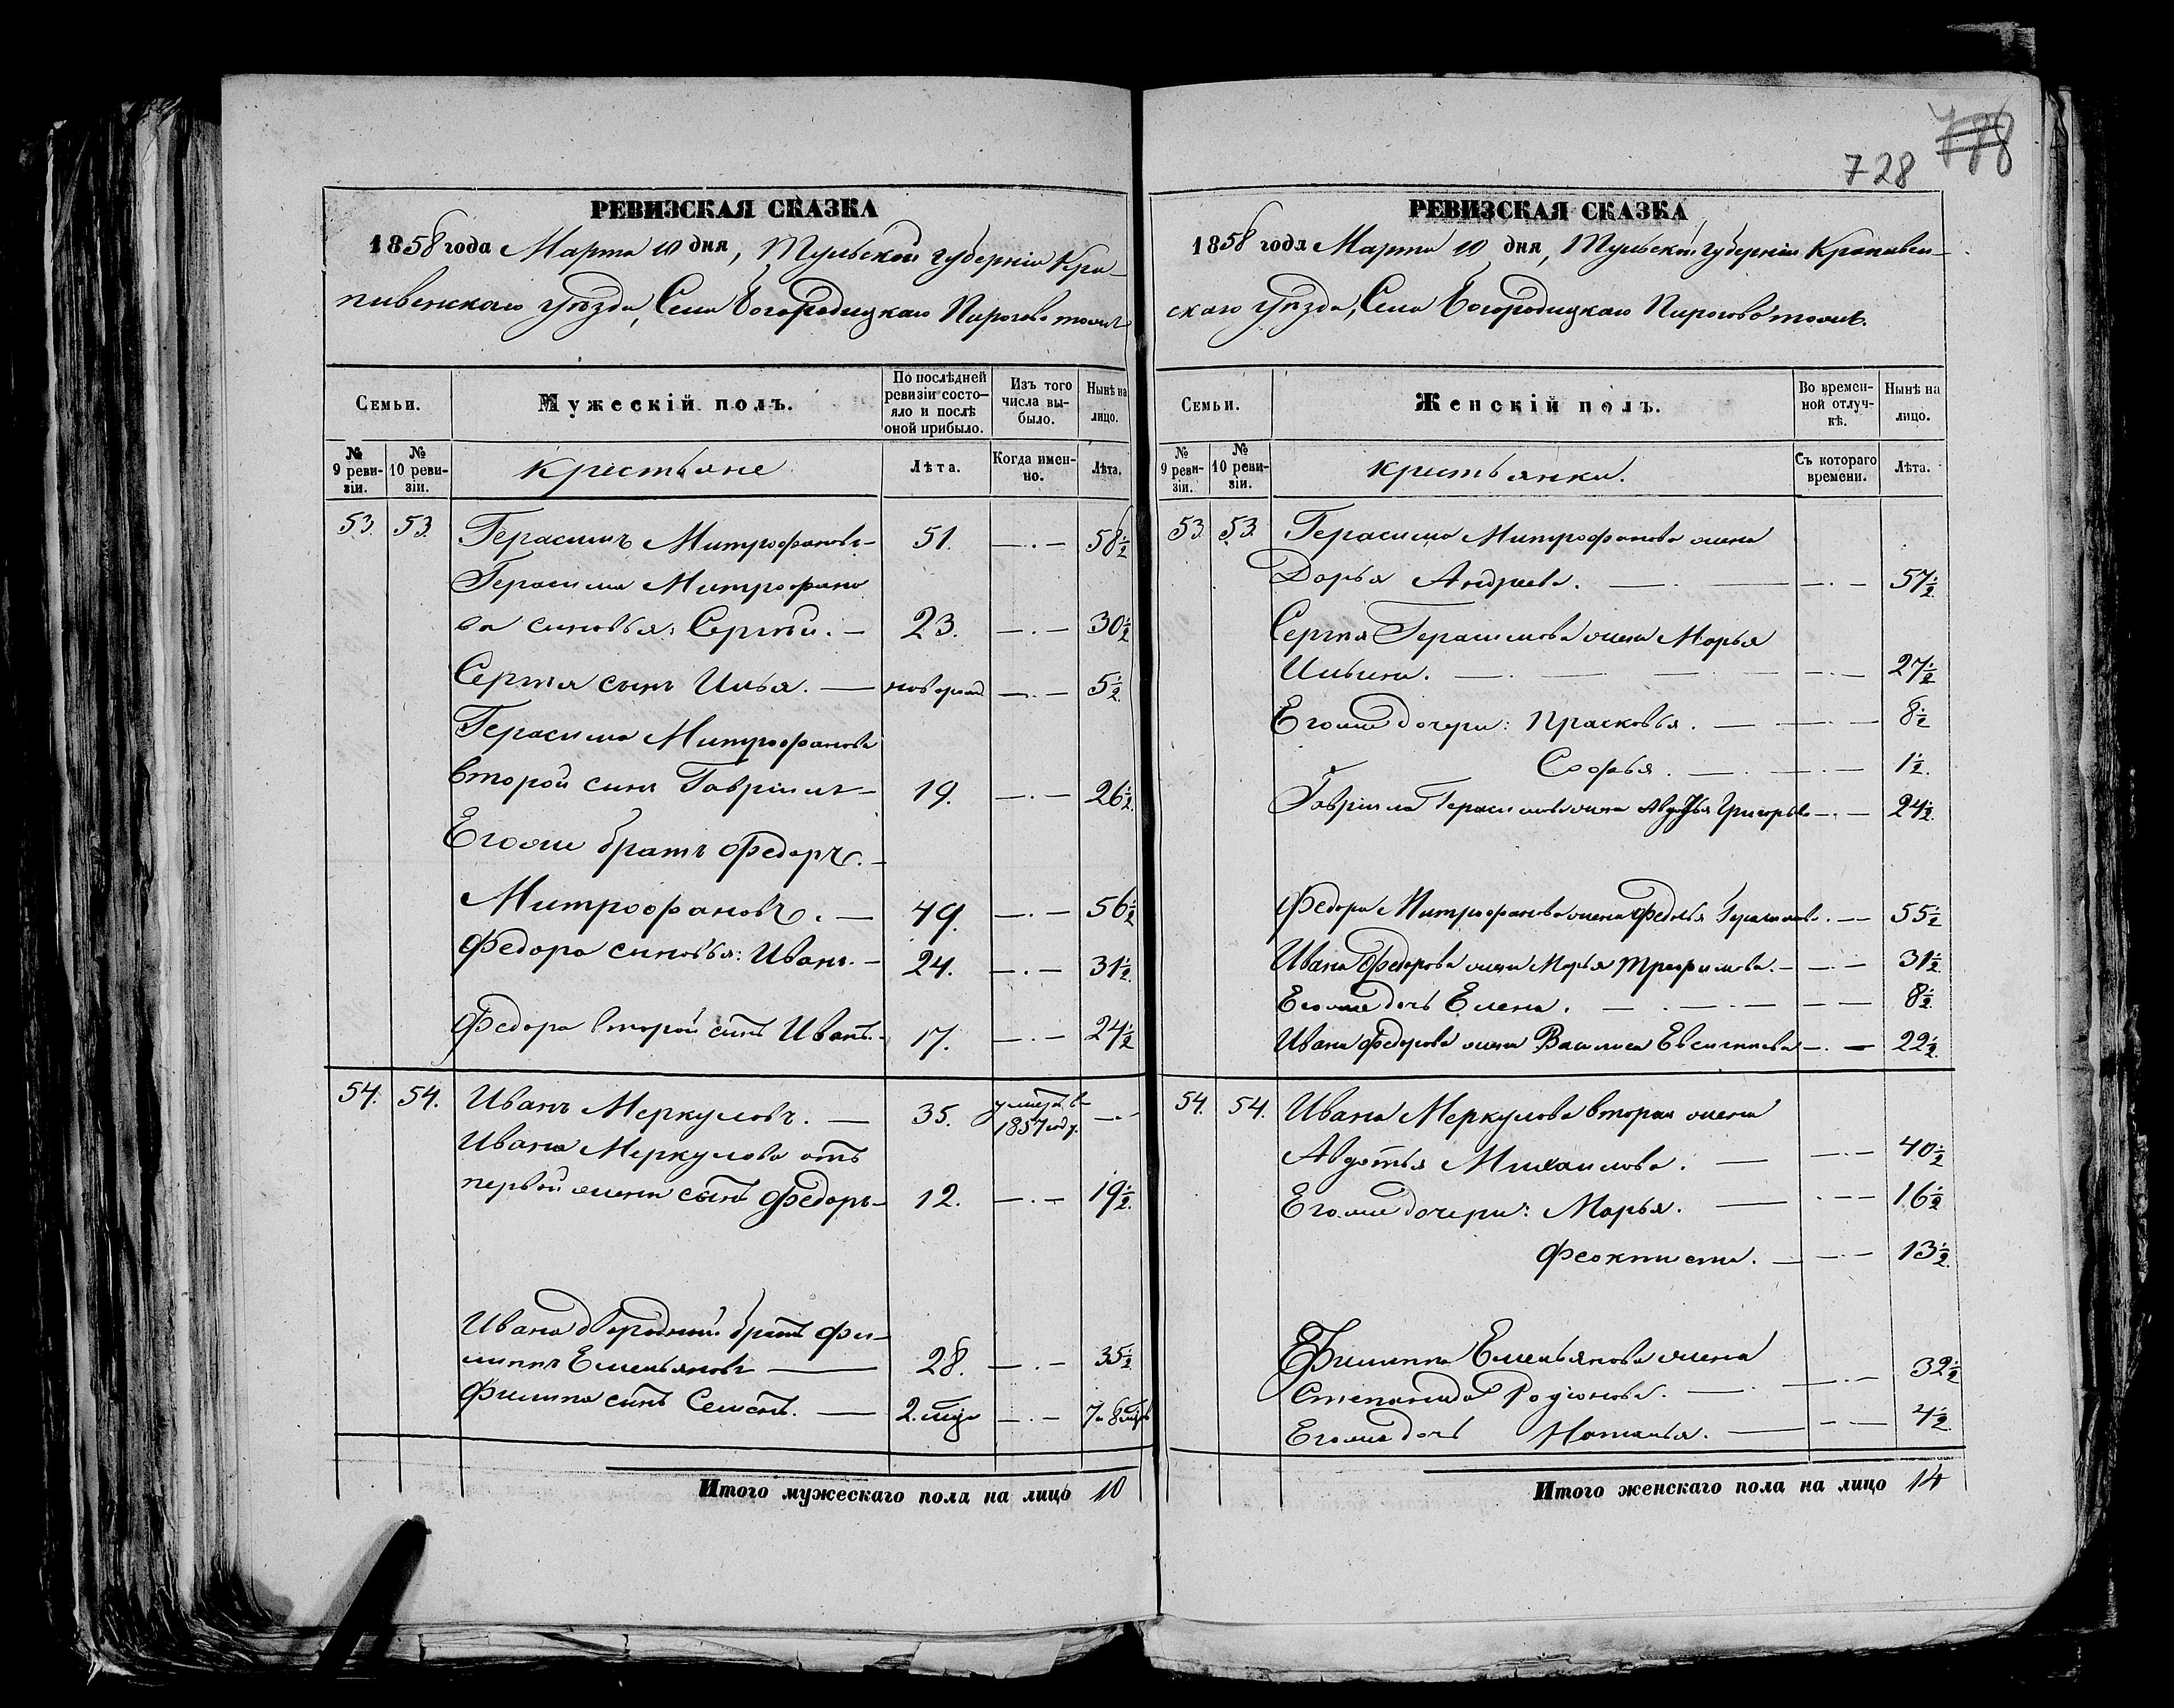 728
788
РЕВИЗСКАЯ СКАЗКА
1858 года Марта 10 дня, Тульской губерніи Кра-
пивенскаго уѣзда, Села Богородицкаго Пирогово тожъ
Семьи.
Мужескій полъ.
По послѣдней ревизіи состо-яло и послѣ оной прибыло.
Изъ того числа вы-было.
Нынѣ на лицо.
№ 9 реви-зіи.
№ 10 реви-зіи.
крестьяне
Лѣта.
Когда имен-но.
Лѣта.
53. 53. Герасимъ Митрофановъ- 51. —.— 58½
Герасима Митрофано
ва сыновья: Сергѣй. — 23. —.— 30½
Сергѣя сынъ Илья. — новорож —.— 5½
Герасима Митрофанова
второй сынъ Гавріилъ- 19. —.— 26½
Его же братъ Федоръ.-
Митрофановъ. — 49. —.— 56½
Федора сыновья: Иванъ.- 24. —.— 31½
Федора второй сынъ Иванъ.- 17. —.— 24½
54. 54. Иванъ Меркуловъ. — 35. умеръ въ 1857 году. —.-
Ивана Меркулова отъ
первой жены сынъ Федоръ- 12. —.— 19½
Ивана двородный братъ Фи-
липпъ Емельяновъ — 28. —.— 35½
Филипа сынъ Семенъ. — 2. мѣся —.— 7 и 8 мѣсъ
Итого мужескаго пола на лицо 10
РЕВИЗСКАЯ СКАЗКА
1858 года Марта 10 дня, Тульской губерніи Крапивен-
скаго уѣзда, Села Богородицкаго Пирогово тожъ.
Семьи.
Женскій полъ.
Во времен-ной отлуч-кѣ.
Нынѣ на лицо.
№ 9 реви-зіи.
№ 10 реви-зіи.
крестьянки.
Съ котораго времени.
Лѣта.
53. 53. Герасима Митрофанова жена
Дарья Андреева. — —.— 57½
Сергѣя Герасимова жена Марья
Ильина. — —.— 27½
Его же дочери: Прасковья. — —.— 8½
Софья. — —.— 1½
Гавріила Герасимова жена Авдотья Григорьева —.— 24½
Федора Митрофанова жена Федосья Герасимова. —— 55½
Ивана Федорова жена Марья Трофимова. - —.— 31½
Его же дочь Елена. — —— 8½
Ивана Федорова жена Василиса Евсигниева —.— 22½
54. 54. Ивана Меркулова вторая жена
Авдотья Михаилова. — —.— 40½
Его же дочери: Марья. — .—— 16½
Феоктиста. — —.— 13½
Филиппа Емельянова жена
Степанида Родіонова. — —.— 32½
Его же дочь Наталья. — —.— 4½
Итого женскаго пола на лицо 14